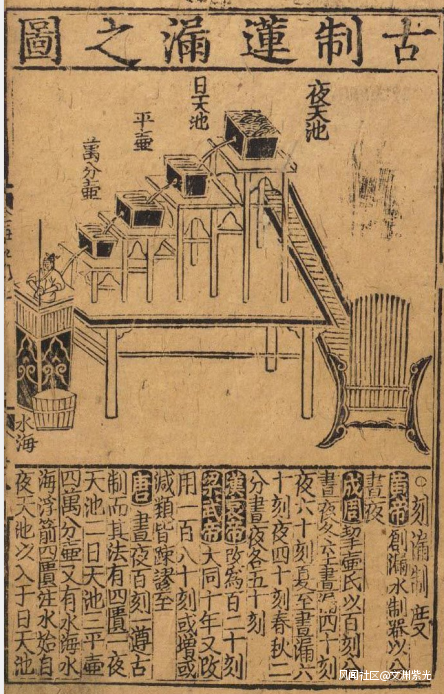 古制蓮漏之圖
夜天池
日天池
平壺
萬分壺
水海
○刻漏制度
黃帝創漏水制器以
晝夜
成周挈壺氏以百刻
晝夜冬至晝漏四十刻
夜六十刻夏至晝漏六
十刻夜四十刻春秋二
分晝夜各五十刻
漢哀帝改為百二十刻
梁武帝大同十年又改
用一百八十刻或增或
減類皆疎謬至
唐晝夜百刻一遵古
制而其法有四匱一夜
天池二日天池三平壺
四萬分壺又有水海水
海浮箭四匱注水始自
夜天池以入于日天池
风闻社区@文洲紫光